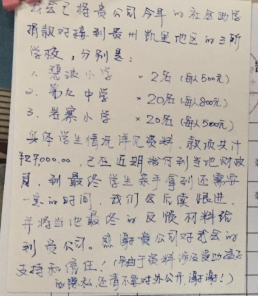 我会已将贵公司今年的社会助学
捐款对接到贵州凯里地区的三所
学校，分别是：
1. 小学 * 2名（每人500元）
2. 第 中学 * 20名（每人800元）
3. 寨小学 * 20名（每人500元）
受助学生情况详见资料，款项共计
000.00，已在近期 到当地财政
局，到最终学生亲手拿到还需要
一定的时间，我们会后续跟进
并将当地最终的反馈材料给
到贵公司。感谢贵公司对我会的
支持和信任！（ 由于资料涉及受助孩子
的隐私，还请不要对外公开，谢谢！）